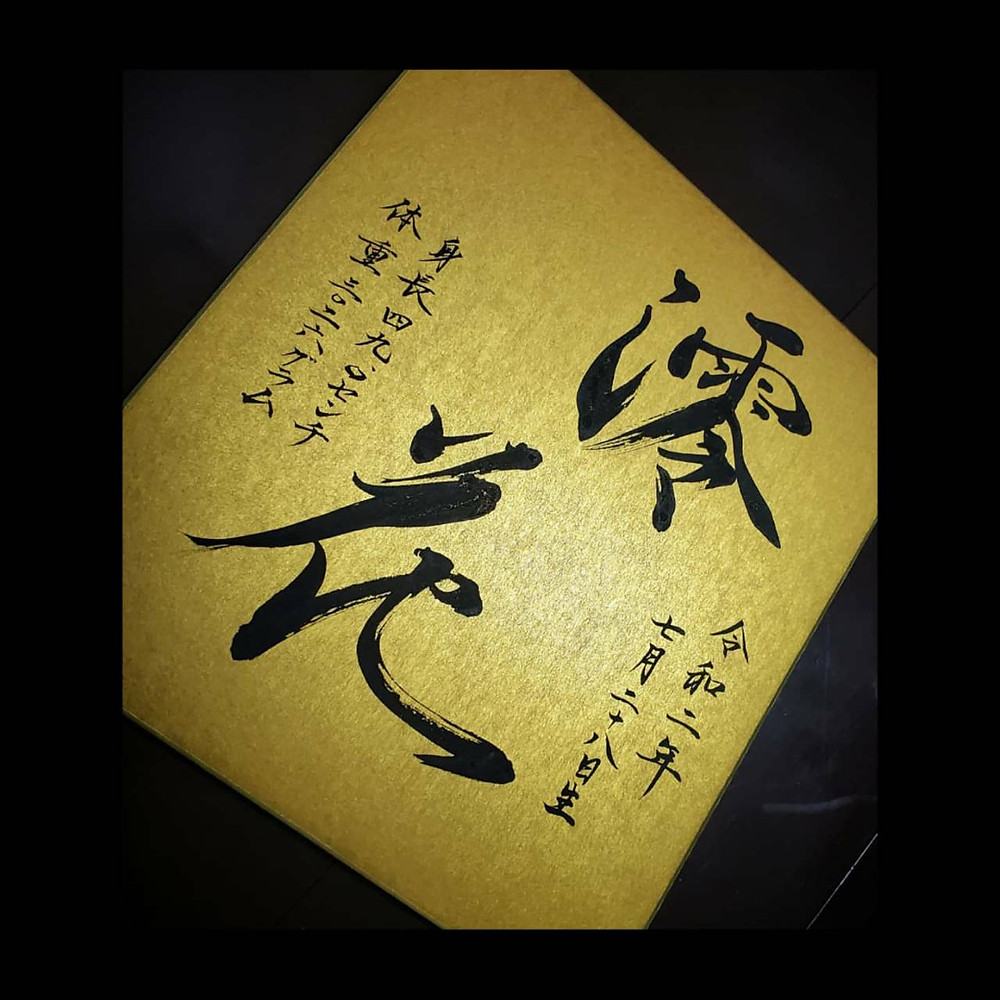 澪花
令和二年
七月二十八日生
身長四九.〇センチ
体重三〇二六グラム